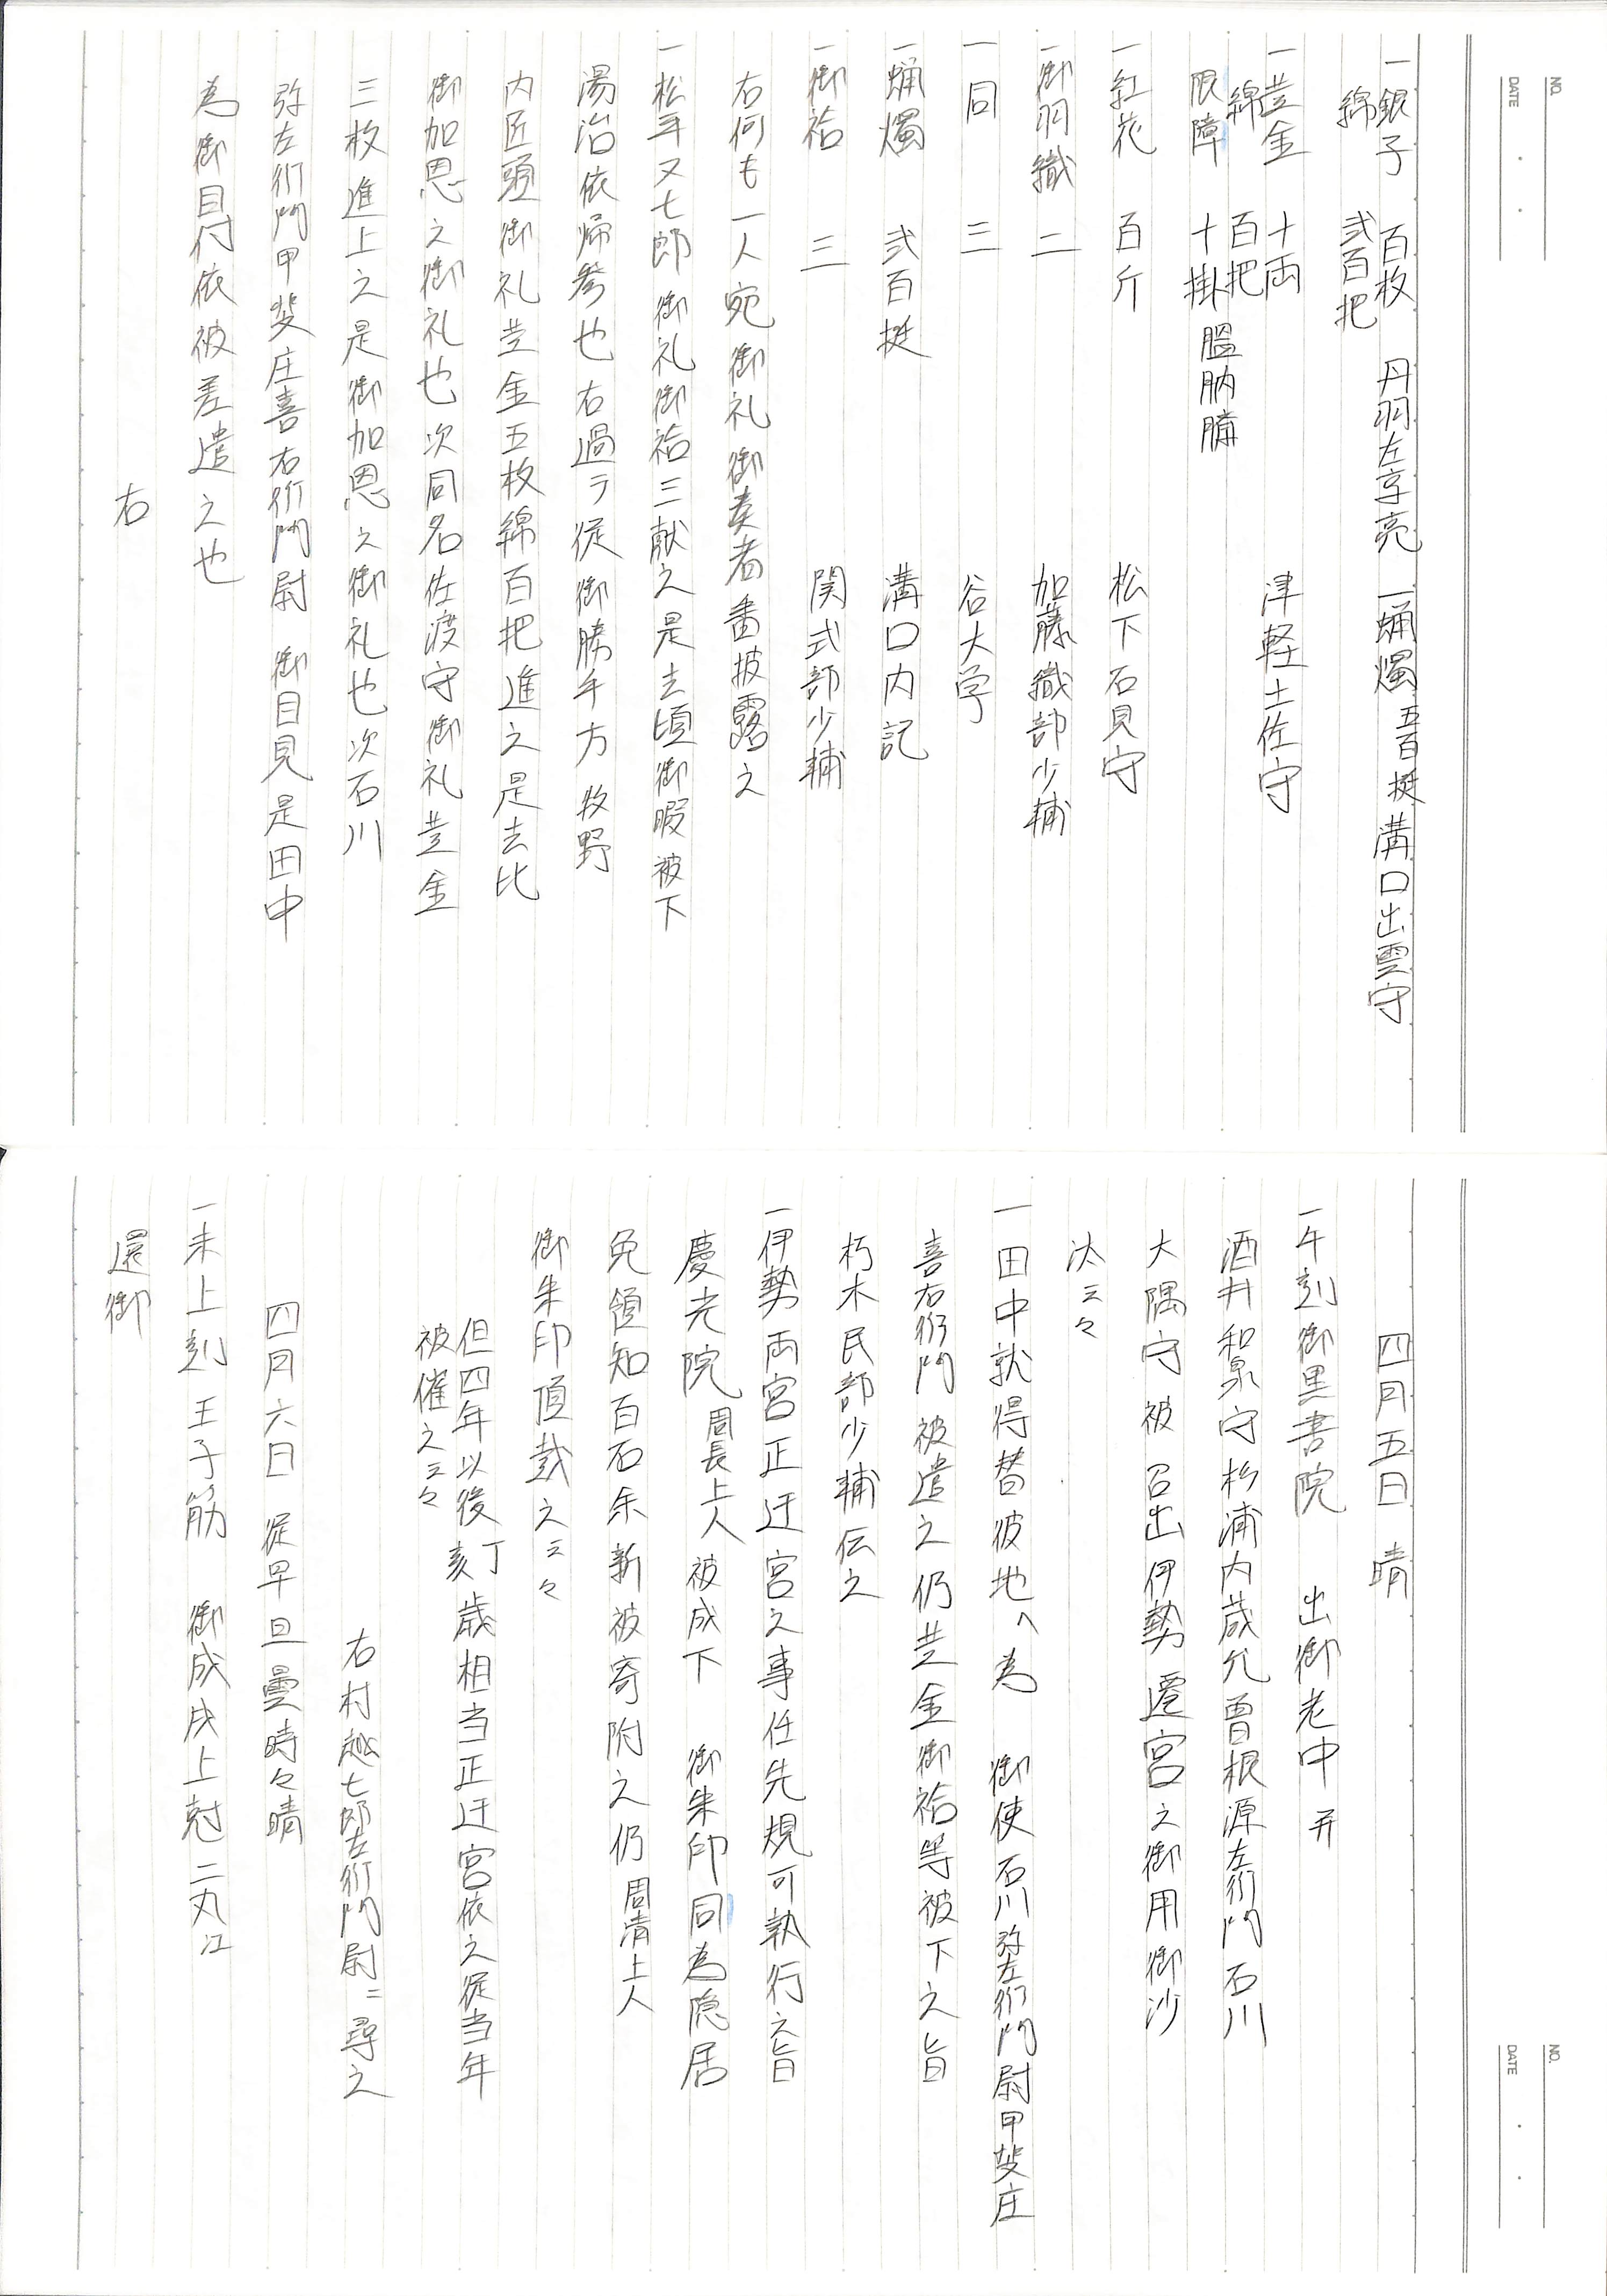 NO.
DATE
一銀子 百枚 丹羽左京亮 一蝋燭 五百挺 溝口出雲守
綿 弐百把
一黄金 十両 津軽土佐守
綿 百把
限障 十掛 膃肭臍
一紅花 百斤 松下石見守
一御羽織 二 加藤織部少輔
一同 三 谷大学
一蝋燭 弐百挺 溝口内記
一御袷 三 関式部少輔
右何も一人宛御礼御奏者番披露之
一松平又七郎御礼御袷三献之是去頃御暇被下
湯治依帰参也右過ラ従御勝手方牧野
内匠頭御礼黄金五枚綿百把進之是去比
御加恩之御礼也次同名佐渡守御礼黄金
三枚進上之是御加恩之御礼也次石川
弥左衛門甲斐庄喜右衛門尉 御目見是田中
為御目付依被差遣之也
右
NO.
DATE
四月五日 晴
一午刻御黒書院 出御老中并
酒井和泉守杉浦内蔵允曽根源左衛門石川
大隅守被召出伊勢遷宮之御用御沙
汰云々
一田中就得替彼地へ為 御使石川弥左衛門尉甲斐庄
喜右衛門被遣之仍黄金御袷等被下之旨
朽木民部少輔伝之
一伊勢両宮正迂宮之事任先規可執行之旨
慶光院周長上人被成下 御朱印同為隠居
免領知百石余新被寄附之仍周清上人
御朱印頂戴之云々
但四年以後丁亥歳相当正迂宮依之従当年
被催之云々
右村越七郎左衛門尉ニ尋之
四月六日 従早旦曇時々晴
一未上刻王子筋 御成戌上尅二丸江
還御